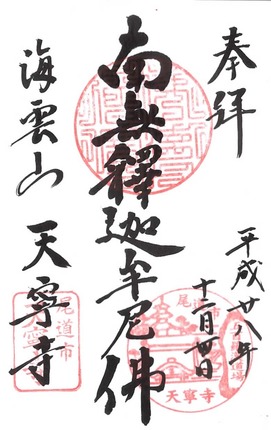 奉拝
平成廿八年
十二月四日
南無釋迦牟尼佛
海雲山 天寧寺
尾道市
天寧寺
尾道市
天寧寺